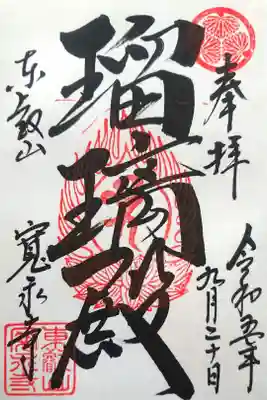 奉拝
令和五年
九月二十日
瑠璃殿
東叡山
寛永寺
東叡山
寛永寺